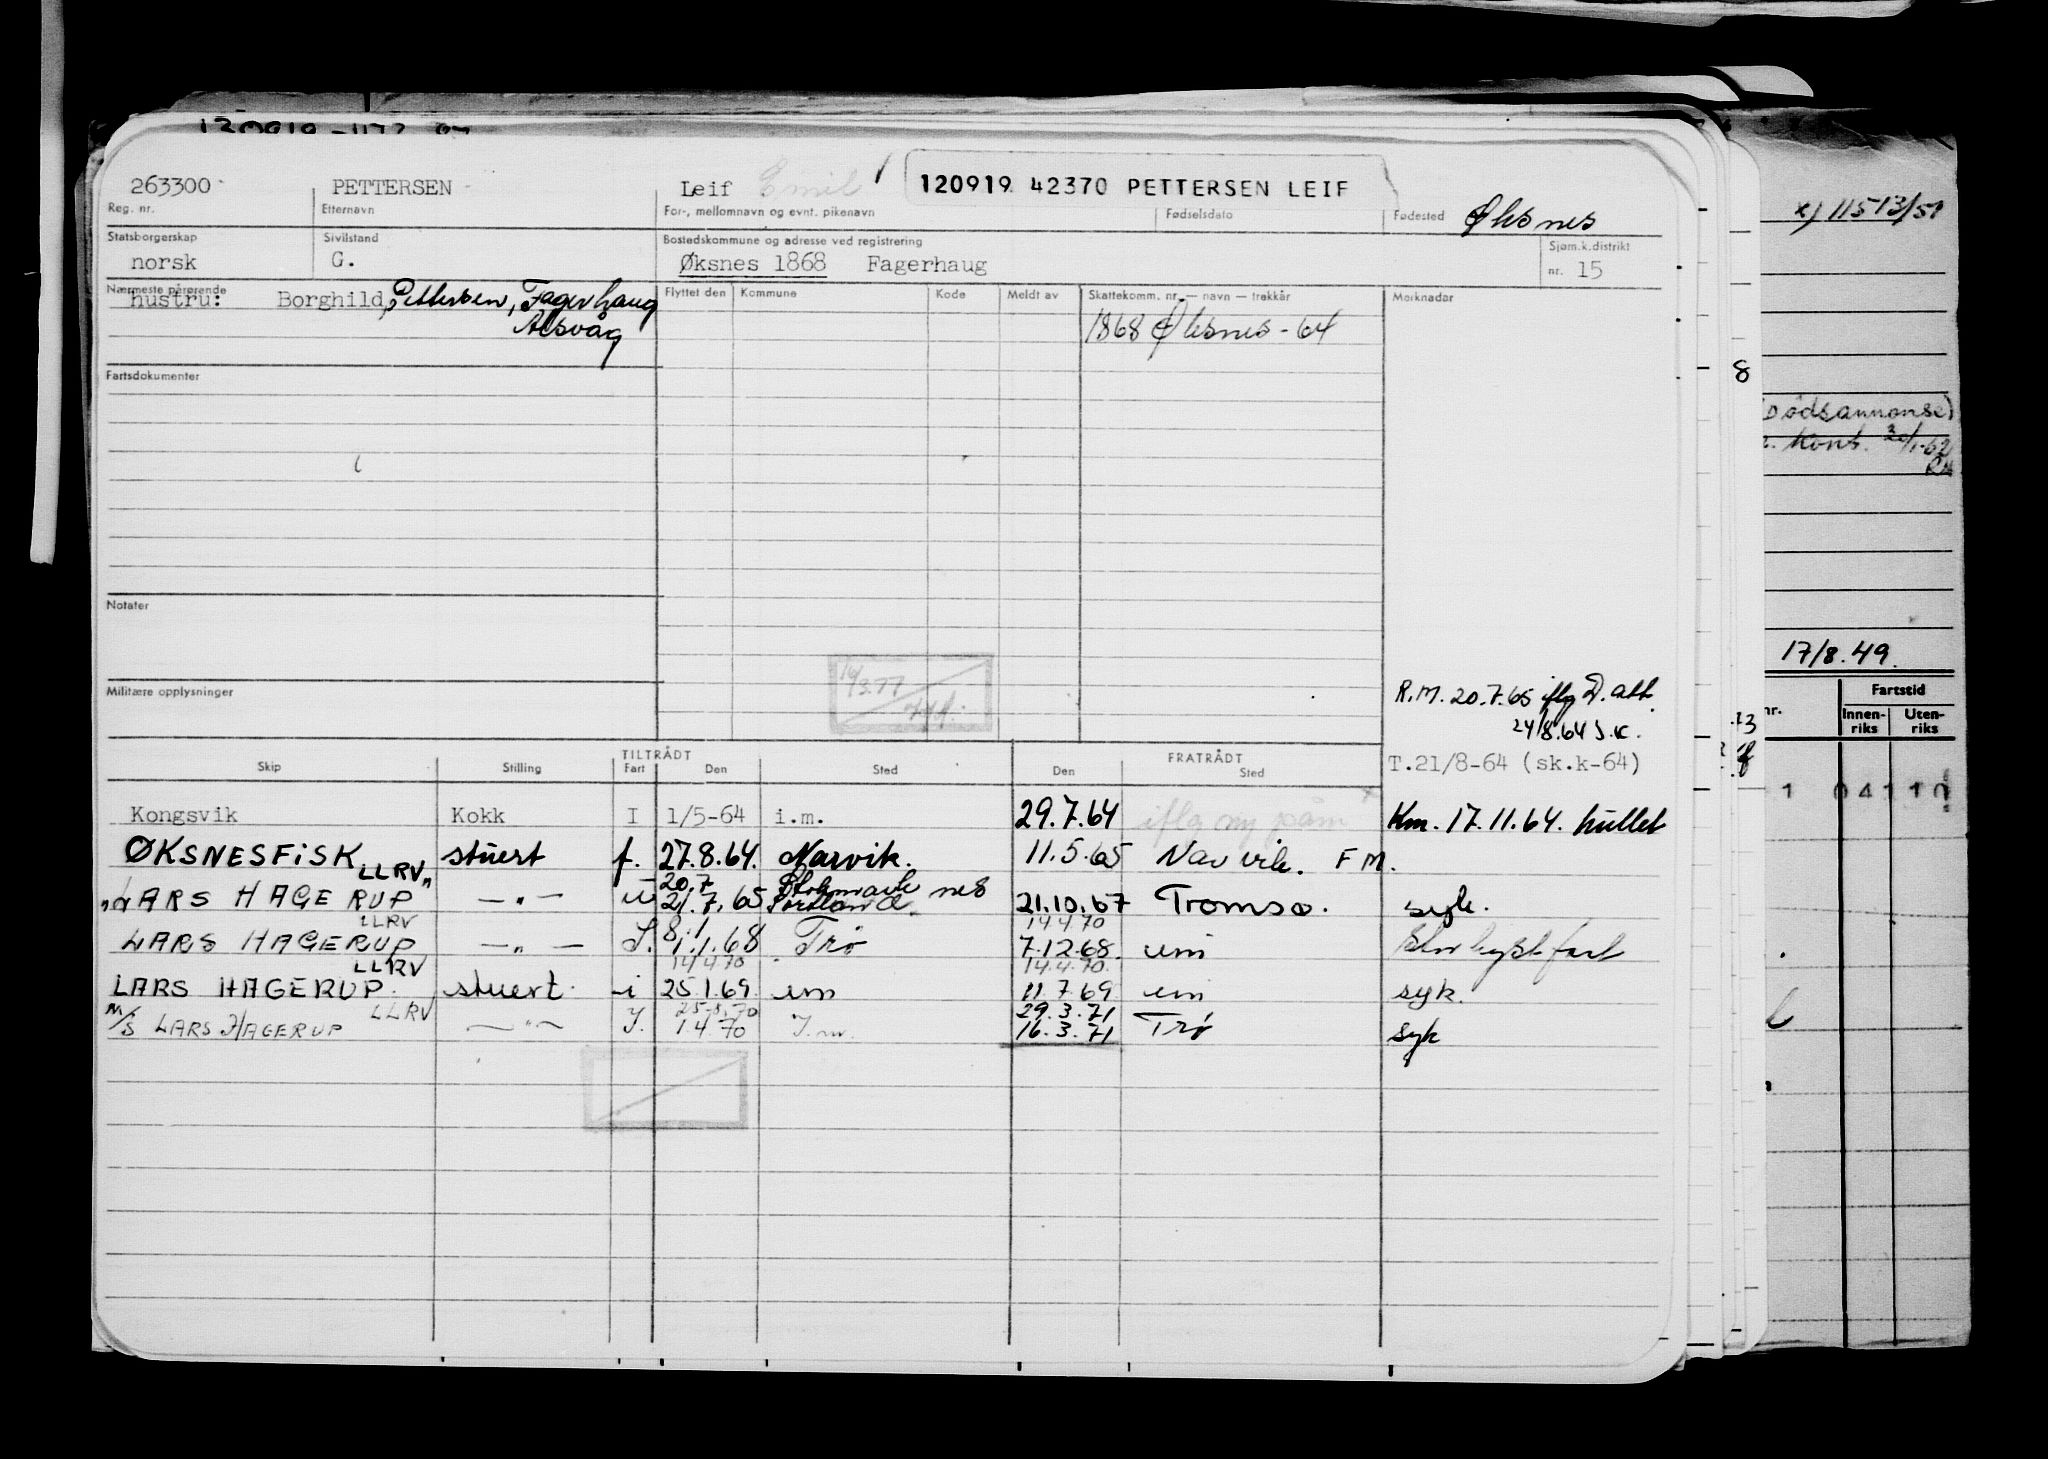 263300 PETTERSEN Leif Emil 120919 42370 PETTERSEN LEIF Øksnes
Reg. nr. Etternavn For-, mellomnavn og evnt. pikenavn Fødselsdato Fødested
Statsborgerskap Sivilstand Bostedskommune og adresse ved registrering Sjøm.k.distrikt
norsk G. Øksnes 1868 Fagerhaug nr. 15
Nærmeste pårørende Flyttet den Kommune Kode Meldt av Skattekomm. nr. — navn — trekkår Merknader
hustru: Borghild Pettersen, Fagerhaug
Alsvåg
1868 Øksnes - 64
Fartsdokumenter
Notater
Militære opplysninger
R.M. 20.7.65 iflg D. att.
24/8.64 S.K.
T.21/8-64 (sk.k-64)
TILTRÅDT FRATRÅDT
Skip Stilling Fart Den Sted Den Sted
Kongsvik Kokk I 1/5-64 i.m. 29.7.64 iflg ny påm Km. 17.11.64. hullet
ØKSNESFISK stuert f. 27.8.64. Narvik. 11.5.65 Narvik. FM.
LLRV 20.7 Stokmarknes
"LARS HAGERUP" —"— 21.7.65 Portland. 21.10.67 Tromsø. syk.
LLRV 8.1 14.4.70
LARS HAGERUP —"— 1.1.68 Trø 7.12.68 um
LLRV 14.4.70 14.4.70.
LARS HAGERUP. stuert. i 25.1.69. um 11.7.69 um syk.
LLRV 29.3.71
M/S LARS HAGERUP —"— I. 1.4.70 I.m. 16.3.71 Trø syk
x) 11513/51
8
(Dødsannonse)
17/8.49.
Fartstid
Innen- Uten-
riks riks